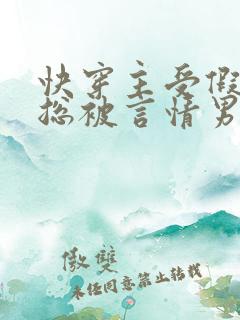 快穿主受假
总被言情男
傲雙
未经同意禁止转载